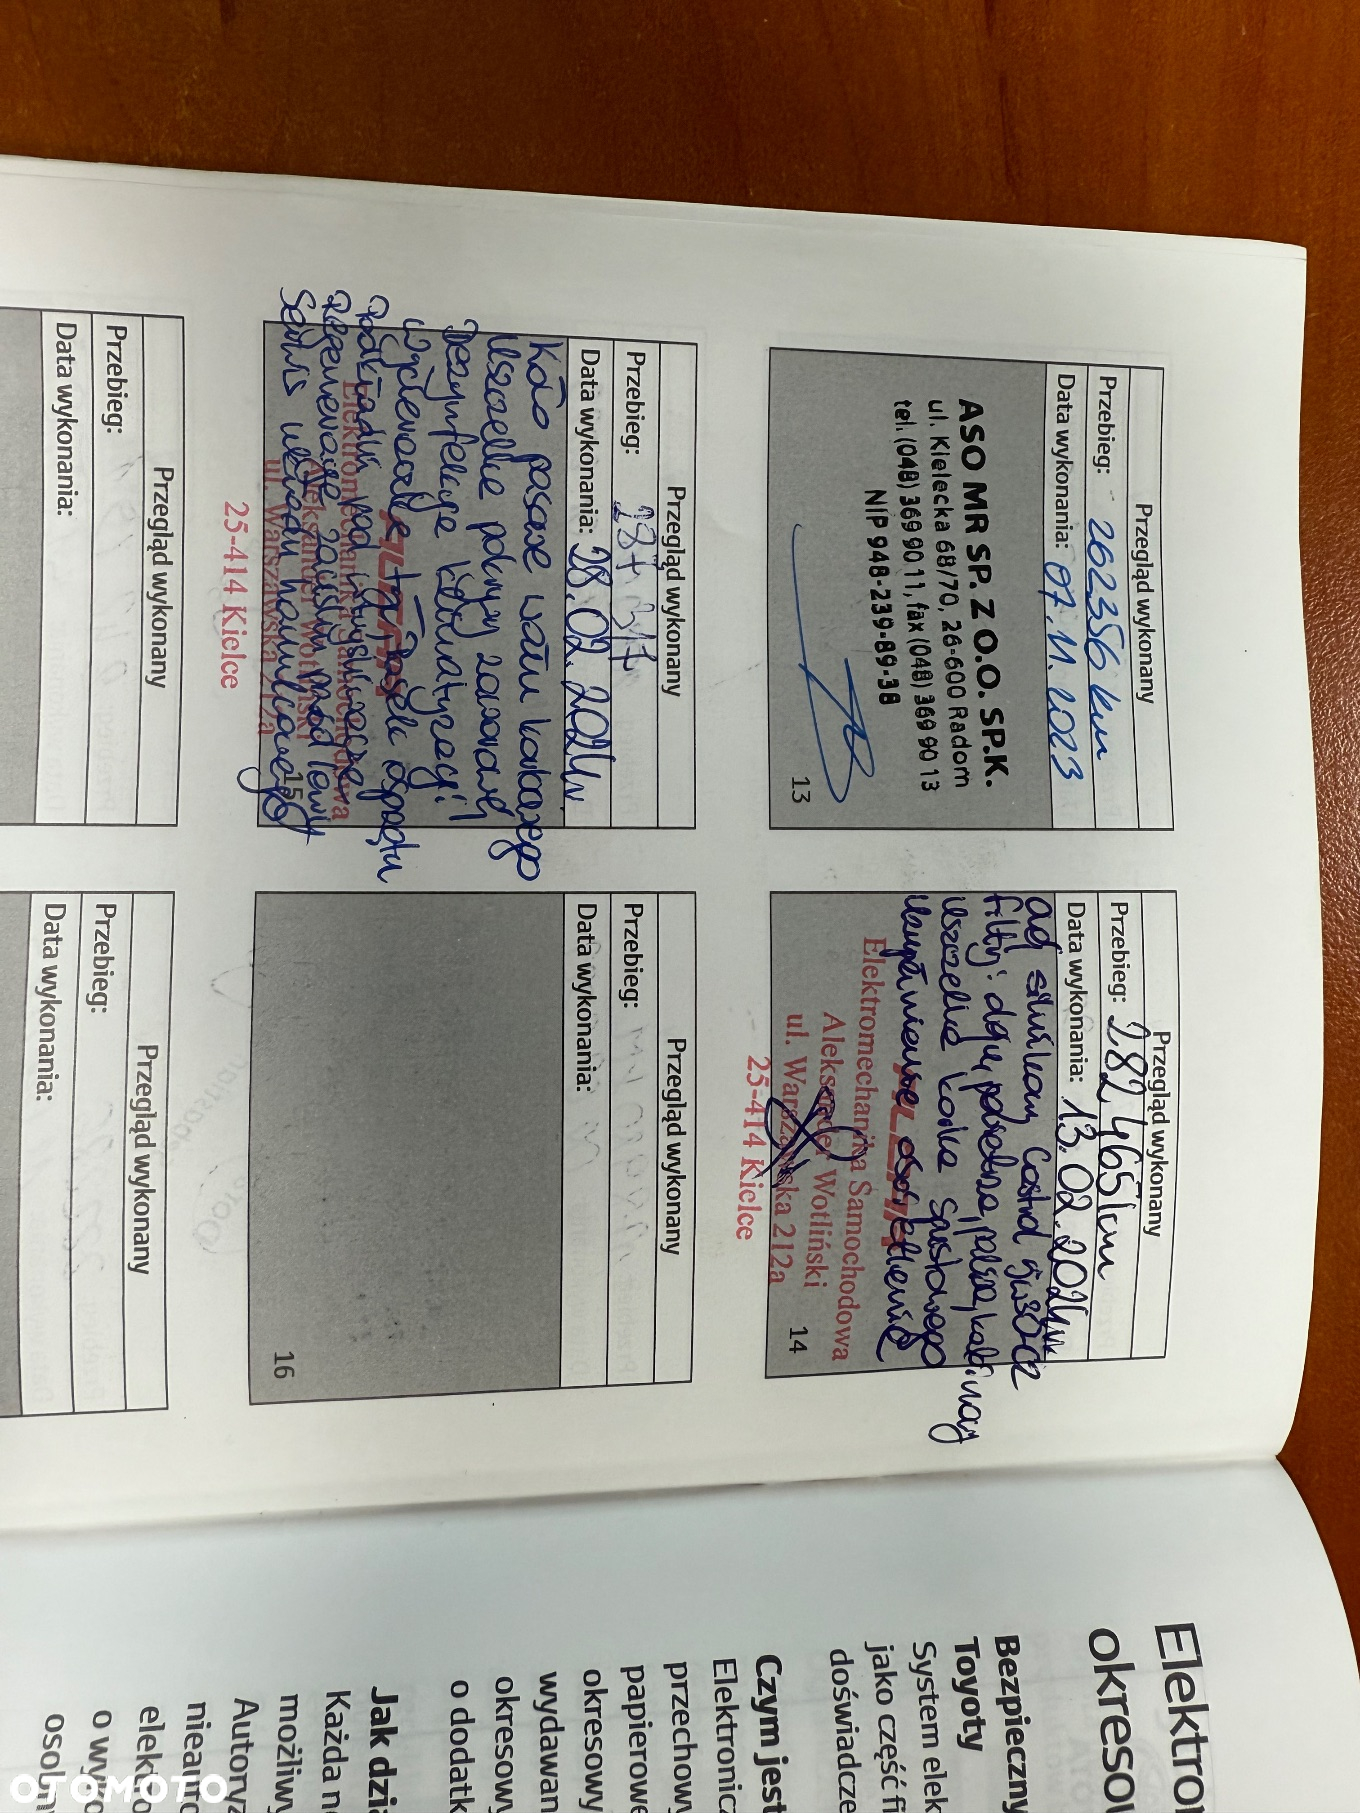 Przegląd wykonany
Przebieg: 262356 km
Data wykonania: 07.11.2023
ASO MR SP. Z O.O. SP.K.
ul. Kielecka 68/70, 26-600 Radom
tel. (048) 369 90 11, fax (048) 369 90 13
NIP 948-239-89-38
13
Przegląd wykonany
Przebieg: 282 465 km
Data wykonania: 13.02.2024
olej silnikowy Castrol 5W30C2
filtry: oleju, powietrza, paliwa, kabinowy
uszczelka korka spustowego
Elektromechanika Samochodowa
Aleksander Wotliński
ul. Warszawska 212a
25-414 Kielce
14
Przegląd wykonany
Przebieg:
Data wykonania: 28.02.2024
Koło pasowe wału korbowego
uszczelka pokrywy zaworów
Dezynfekcja klimatyzacji
Regeneracja zacisku przód lewy
Serwis układu hamulcowego
Elektromechanika Samochodowa
Aleksander Wotliński
ul. Warszawska 212a
25-414 Kielce
15
Przegląd wykonany
Przebieg:
Data wykonania:
16
Przegląd wykonany
Przebieg:
Data wykonania:
Przegląd wykonany
Przebieg:
Data wykonania:
Elektro
okresow
Bezpieczny
Toyoty
System elek
jako część fi
doświadcze
Czym jest
Elektronicz
przechowy
papierowe
okresowy
wydawan
okresowy
o dodatk
Jak dzia
Każda n
możliwy
Autoryz
nieauto
elektro
o wyko
osobn
OTOMOTO